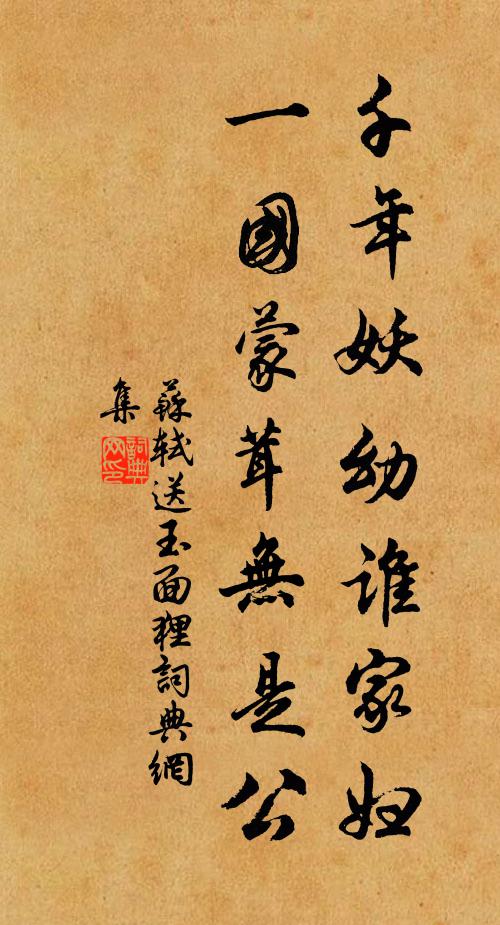 千年妖幼谁家妇
一國蒙茸無是公
蘇軾送玉面狸詞典網
集
詞典網印